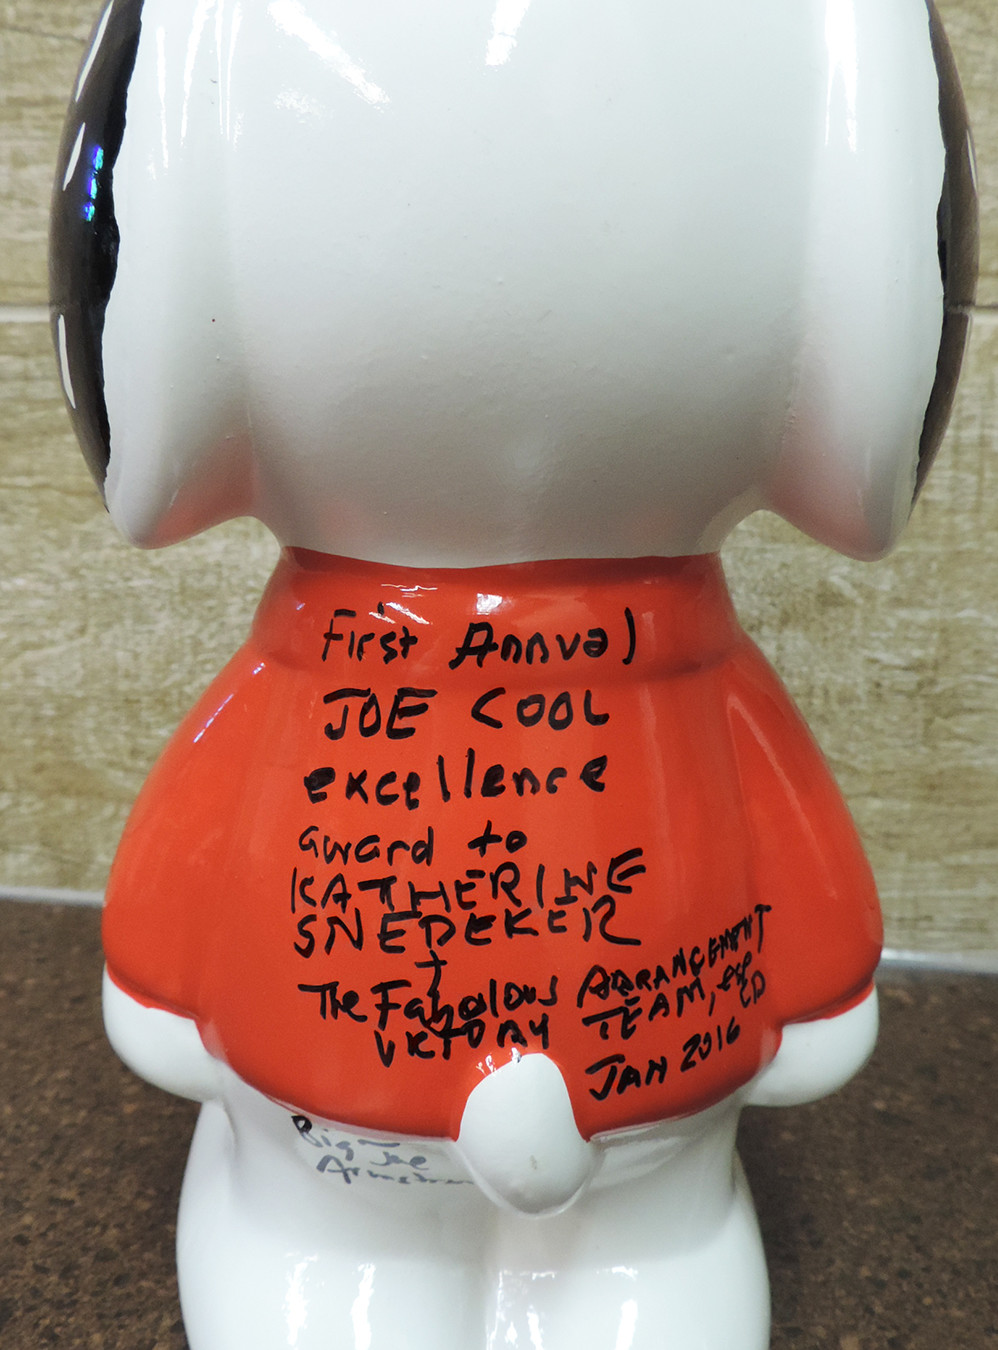 First Annual
JOE COOL
excellence
award to
KATHERINE
SNEDEKER
+
The Fabolous ARRANGEMENT
VICTORY TEAM, esp CD
JAN 2016
Big Joe
Armstrong